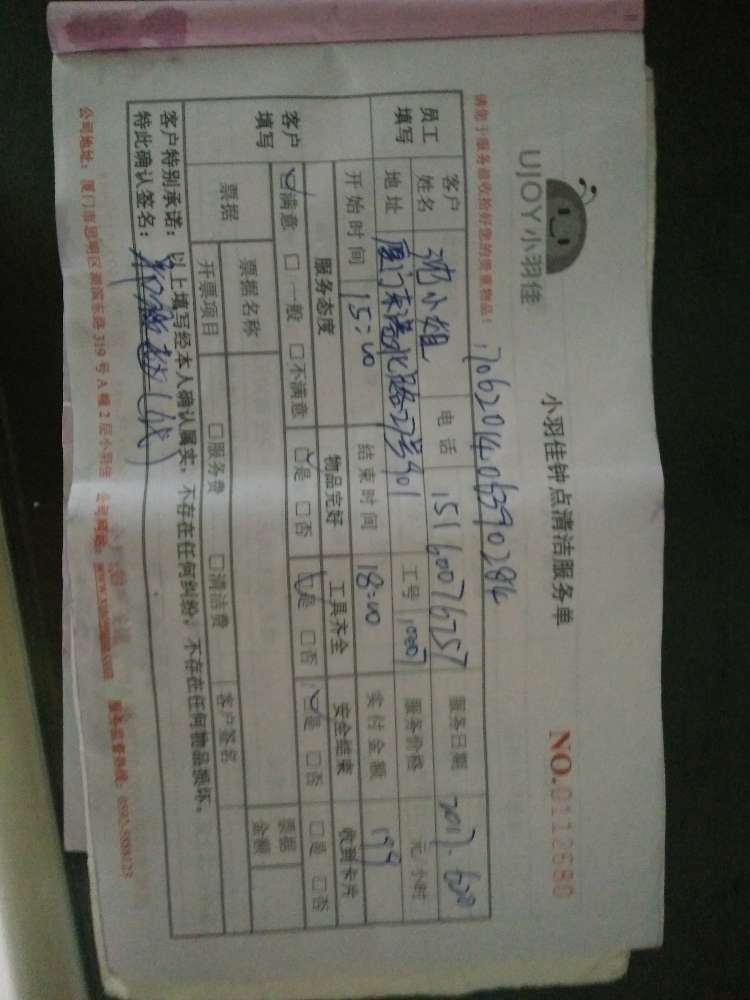 UJOY小羽佳
小羽佳钟点清洁服务单
NO.0112680
请您于服务验收拾好您的贵重物品！
员工填写
客户姓名 小姐 电话 15160076757 服务日期 2017.
地址 厦门 北路27号901 工号 服务价格 元/小时
开始时间 15:00 结束时间 18:00 实付金额 199
客户填写
服务态度 物品完好 工具齐全 安全结束 收到卡片
☑满意 □一般 □不满意 ☑是 □否 ☑是 □否 ☑是 □否 □是 □否
票据 票据名称 票据金额
开票项目 □服务费 □清洁费 客户签名
客户特别承诺：以上填写经本人确认属实，不存在任何纠纷，不存在任何物品损坏。
特此确认签名：
公司地址：厦门市思明区湖滨东路319号A幢2层小羽佳 公司网站： 服务监督热线：